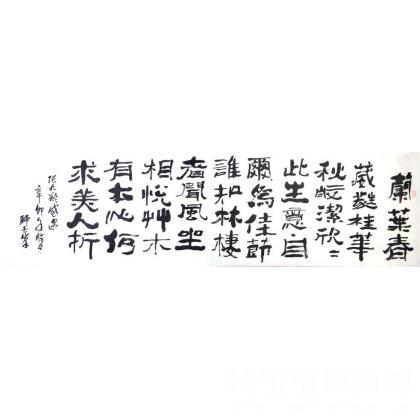 蘭葉春
葳蕤桂華
秋皎潔欣〻
此生意自
爾為佳節
誰知林棲
者聞風坐
相悅艸木
有本心何
求美人折
張九齡感遇
辛卯年